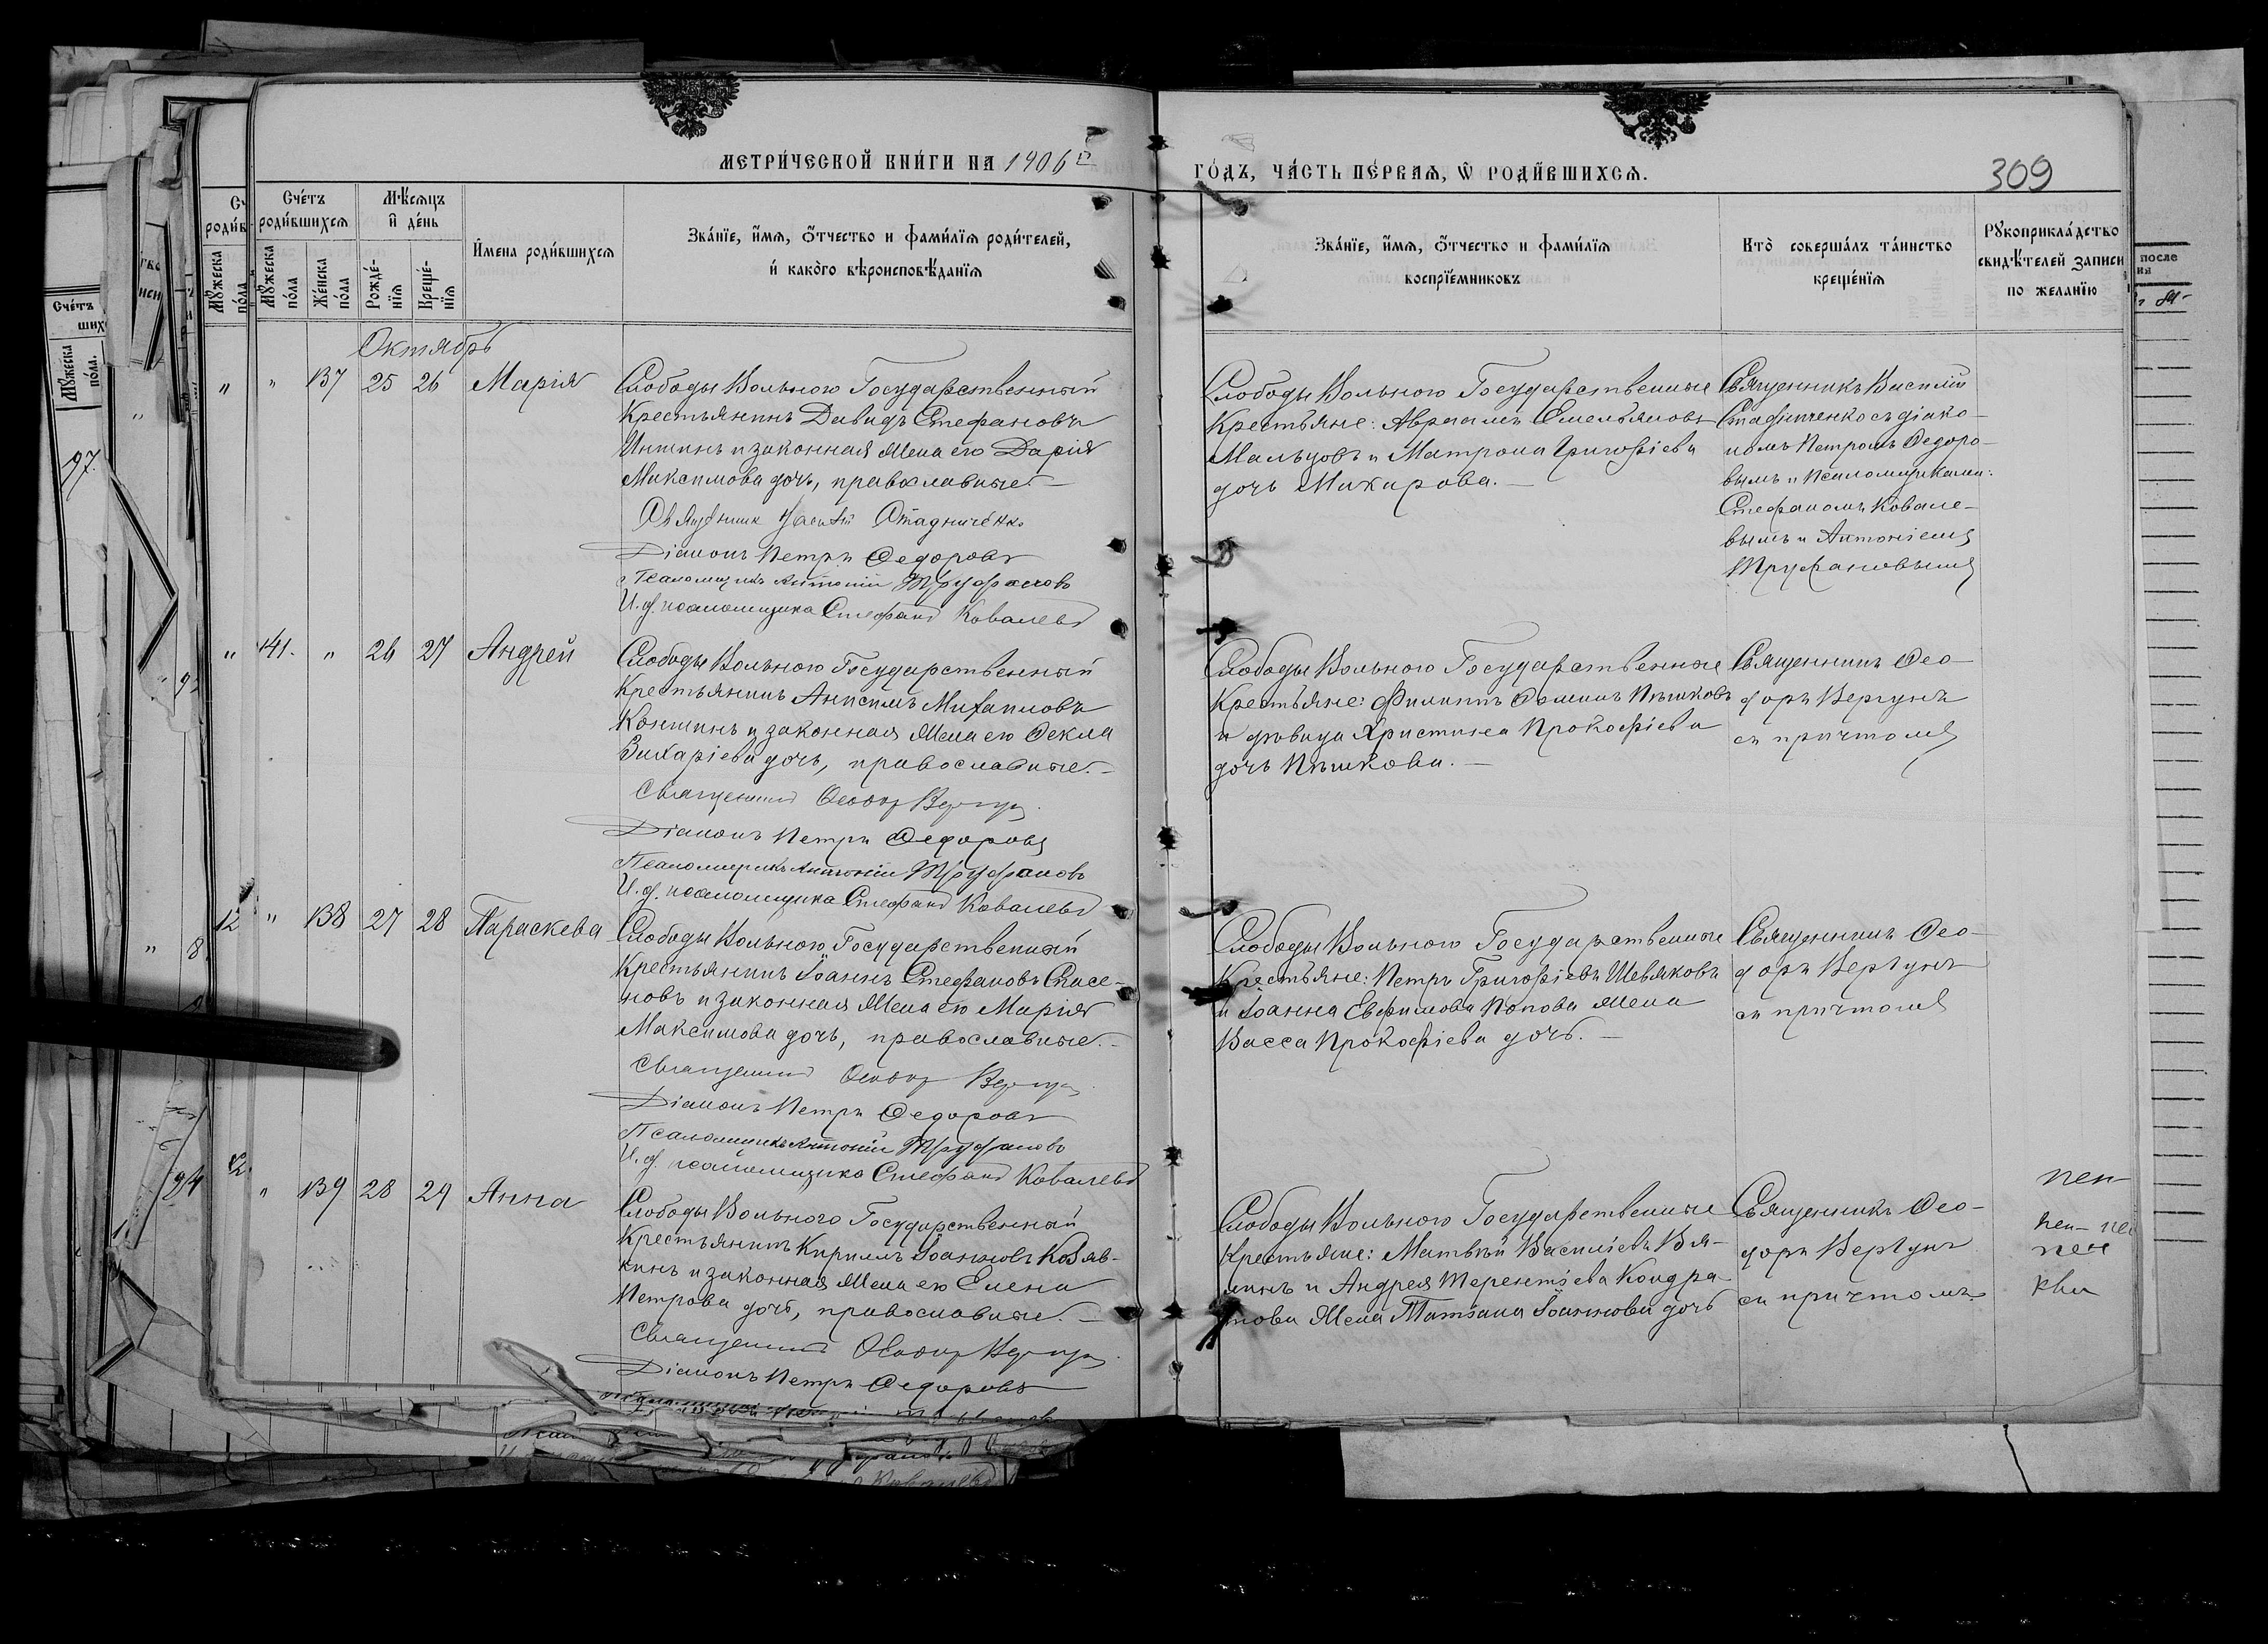 МЕТРИ́ЧЕСКОЙ КНИ́ГИ НА 1906 й
ГО́ДЪ, ЧА́СТЬ ПЕ́РВАЯ, Ѡ РОДИ́ВШИХСЯ.
309
Сче́тъ роди́вшихся
Мѣ́сяцъ и де́нь
Имена роди́вшихся
Зва́нїе, и́мя, о́тчество и фами́лїя роди́телей,
и какого вѣроисповѣ́данїя
Зва́нїе, и́мя, о́тчество и фами́лїя
воспрїе́мниковъ
Кто̀ соверша́лъ та́инство
креще́нїя
Рꙋкоприкла́дство
свидѣ́телей записи
по жела́нїю
Мꙋ́жеска по́ла
Же́нска по́ла
Рожде́-
нїя
Креще́-
нїя
Октябрь
" 137 25 26 Марія
Слободы Вольнаго Государственный
Крестьянинъ Давидъ Стефановъ
и законная жена его Дарія
Максимова дочь, православные.
Священник
Діаконъ Петръ Ѳедоровъ
Псаломщикъ Антоній Труфановъ
И. д. псаломщика Стефанъ Ковалевъ
Слободы Вольнаго Государственные
Крестьяне: Авраамъ Емельяновъ
Мальцовъ и Матрона Григоріева
дочь Макирова.
Священникъ Василій
съ діако-
номъ Петромъ Ѳедоро-
вымъ и Псаломщиками:
Стефаномъ Ковале-
вымъ и Антоніемъ
Труфановымъ
141. " 26 27 Андрей
Слободы Вольнаго Государственный
Крестьянинъ Анисимъ Михаиловъ
Коншинъ и законная жена его Ѳекла
Захаріева дочь, православные.
Священникъ Ѳеодор Вергун
Діаконъ Петръ Ѳедоровъ
Псаломщикъ Антоній Труфановъ
И. д. псаломщика Стефанъ Ковалевъ
Слободы Вольнаго Государственные
Крестьяне: Филиппъ Ѳоминъ Пѣшковъ
и дѣвица Христина Прокофіева
дочь Пѣшкова.
Священникъ Ѳео-
доръ Вергунъ
съ причтомъ
" 138 27 28 Параскева
Слободы Вольнаго Государственный
Крестьянинъ Іоаннъ Стефановъ Спасе-
новъ и законная жена его Марія
Максимова дочь, православные.
Священникъ Ѳеодор Вергун
Діаконъ Петръ Ѳедоровъ
Псаломщикъ Антоній Труфановъ
И. д. псаломщика Стефанъ Ковалевъ
Слободы Вольнаго Государственные
Крестьяне: Петръ Григоріевъ Шевляковъ
и Іоанна Евфимова Попова жена
Васса Прокофіева дочь.
Священникъ Ѳео-
доръ Вергунъ
съ причтомъ
" 139 28 29 Анна
Слободы Вольнаго Государственный
Крестьянинъ Кириллъ Іоанновъ Козяв-
кинъ и законная жена его Елена
Петрова дочь, православные.
Священникъ Ѳеодор Вергун
Діаконъ Петръ Ѳедоровъ
Слободы Вольнаго Государственные
Крестьяне: Матвѣй Васильевъ Вя-
и Андрея Терентіева Кондра-
това жена Татіана Іоаннова дочь
Священникъ Ѳео-
доръ Вергунъ
съ причтомъ